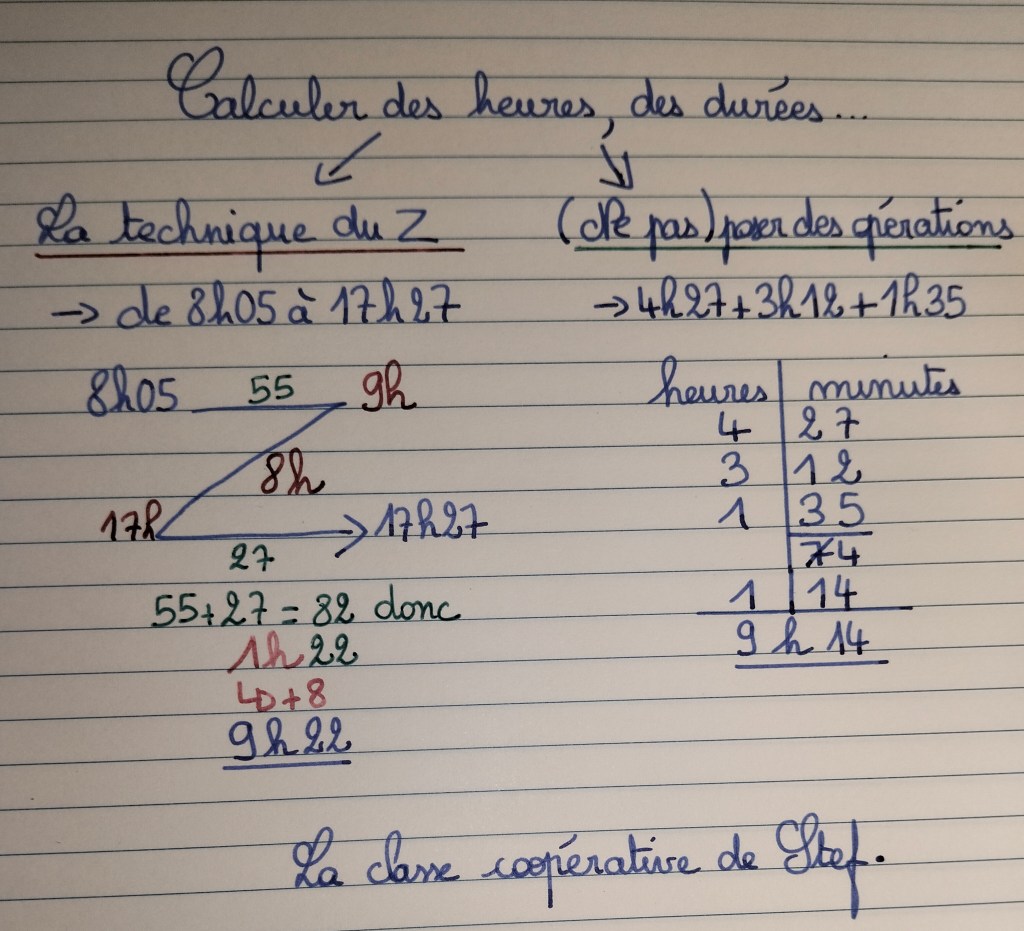 Calculer des heures, des durées...
La technique du Z
→ de 8h05 à 17h27
8h05 55 9h
8h
17h 17h27
27
55+27 = 82 donc
1h22
↳+8
9h22
(Ne pas) poser des opérations
→ 4h27+3h12+1h35
heures minutes
4 27
3 12
1 35
74
1 14
9 h 14
La classe coopérative de Stef.